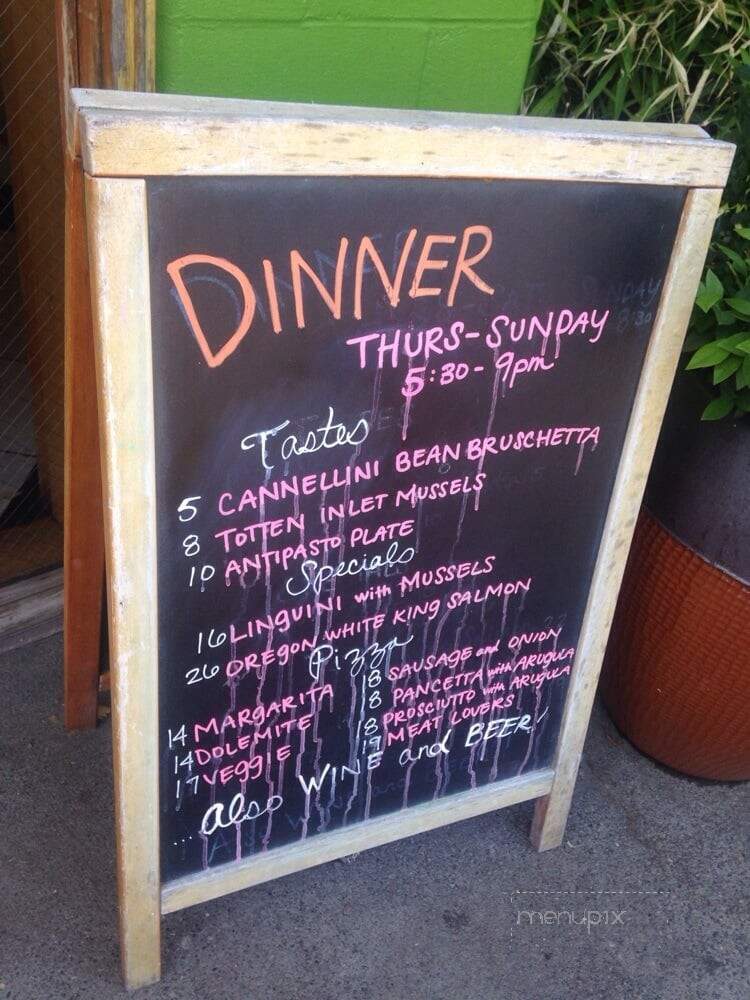 DINNER
THURS-SUNDAY
5:30 - 9pm
Tastes
5 CANNELLINI BEAN BRUSCHETTA
8 TOTTEN INLET MUSSELS
10 ANTIPASTO PLATE
Specials
16 LINGUINI with MUSSELS
26 OREGON WHITE KING SALMON
Pizza
14 MARGARITA
14 DOLEMITE
17 VEGGIE
18 SAUSAGE and ONION
18 PANCETTA with ARUGULA
18 PROSCIUTTO with ARUGULA
19 MEAT LOVERS
... also WINE and BEER!
menupix